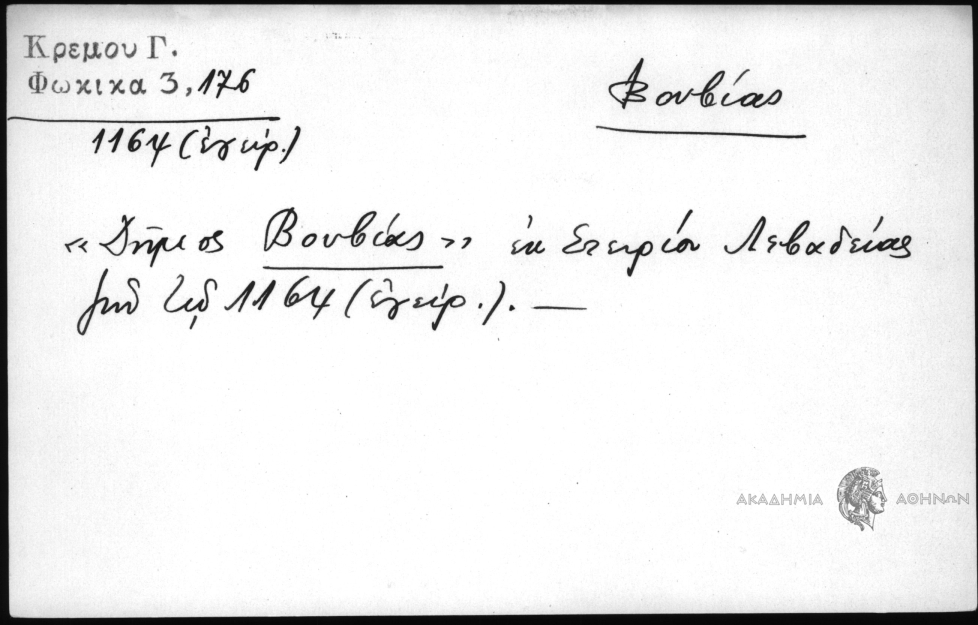 Κρεμου Γ.
Φωκικα 3, 176
1164 (ἐγχειρ.)
Βουβίας
«Δῆμος Βουβίας» ἐκ Στειρίου Λεβαδείας
1164 (ἐγχειρ.). —
ΑΚΑΔΗΜΙΑ ΑΘΗΝΩΝ